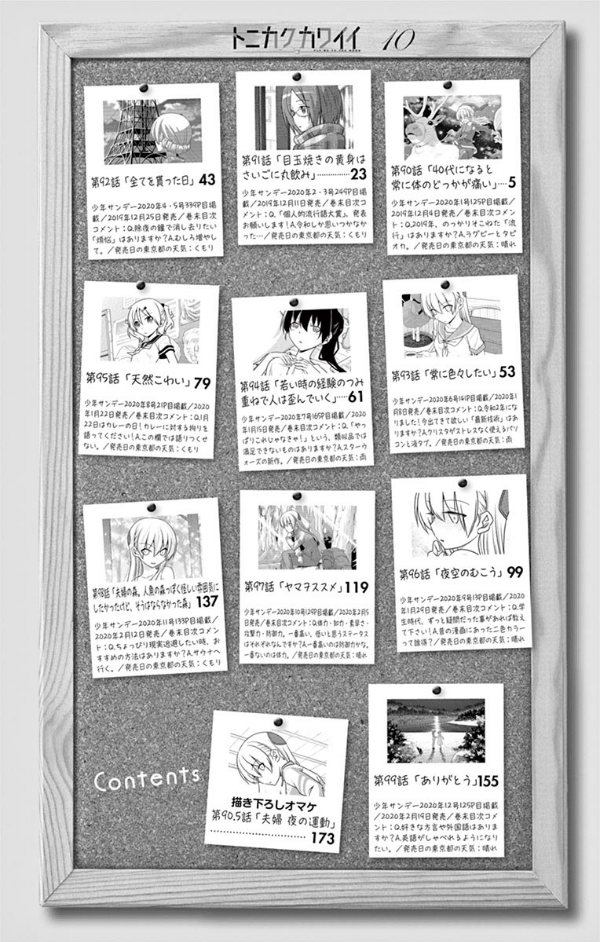 トニカクカワイイ 10
FLY ME TO THE MOON
第90話「40代になると
常に体のどっかが痛い」…5
少年サンデー2020年1号125P目掲載
/2019年12月4日発売/巻末目次コメ
ント:Q.2019年、のっかりそこねた「流
行」はありますか?A.ラグビーとタピ
オカ。/発売日の東京都の天気:晴れ
第91話「目玉焼きの黄身は
さいごに丸飲み」……………23
少年サンデー2020年2・3号249P目掲
載/2019年12月11日発売/巻末目次コ
メント:Q.「個人的流行語大賞」発表
お願いします!A.令和しか思いつかなか
った…/発売日の東京都の天気:くもり
第92話「全てを貰った日」43
少年サンデー2020年4・5号339P目掲
載/2019年12月25日発売/巻末目次
コメント:Q.除夜の鐘で消し去りたい
「煩悩」はありますか?A.むしろ増やし
て。/発売日の東京都の天気:くもり
第93話「常に色々したい」53
少年サンデー2020年6号141P目掲載/2020年1
月8日発売/巻末目次コメント:Q.令和2年にな
りました!今出てきて欲しい「最新技術」はあ
りますか?A.クリスタがストレスなく使えるパソ
コンと液タブ。/発売日の東京都の天気:雨
第94話「若い時の経験のつみ
重ねで人は歪んでいく」…61
少年サンデー2020年7号165P目掲載/2020年
1月15日発売/巻末目次コメント:Q.「やっ
ぱりこれじゃなきゃ!」という、類似品では
満足できないものはありますか?A.スターウ
ォーズの新作。/発売日の東京都の天気:雨
第95話「天然こわい」79
少年サンデー2020年8号21P目掲載/2020
年1月22日発売/巻末目次コメント:Q.1月
22日はカレーの日!カレーに対する拘りを
語ってください!A.この欄では語りつくせ
ない。/発売日の東京都の天気:くもり
第96話「夜空のむこう」99
少年サンデー2020年9号13P目掲載/2020
年1月29日発売/巻末目次コメント:Q.学
生時代、ずっと疑問だった事があれば教え
て下さい!A.昔の漫画にあった二色カラー
って誰得?/発売日の東京都の天気:晴れ
第97話「ヤマヲススメ」119
少年サンデー2020年10号129P目掲載/2020年2月5
日発売/巻末目次コメント:Q.体力・知力・素早さ・
攻撃力・防御力。一番高い、低いと思うステータス
はそれぞれなんですか?A.一番高いのは防御力かな。
一番ないのは体力。/発売日の東京都の天気:晴れ
第98話「夫婦の森。人魚の森っぽく怪しい雰囲気に
したかったけど、そうはならなかった森」137
少年サンデー2020年11号133P目掲載
/2020年2月12日発売/巻末目次コメ
ント:Q.ちょっぴり現実逃避したい時、お
すすめの方法はありますか?A.サウナへ
行く。/発売日の東京都の天気:くもり
第99話「ありがとう」155
少年サンデー2020年12号125P目掲載
/2020年2月19日発売/巻末目次コメ
ント:Q.好きな方言や外国語はありま
すか?A.英語がしゃべれるようになり
たい。/発売日の東京都の天気:晴れ
描き下ろしオマケ
第90.5話「夫婦 夜の運動」
……………………………173
Contents